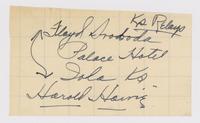 Ks Relays
Floyd Svoboda
Palace Hotel
Iola Ks
Harold